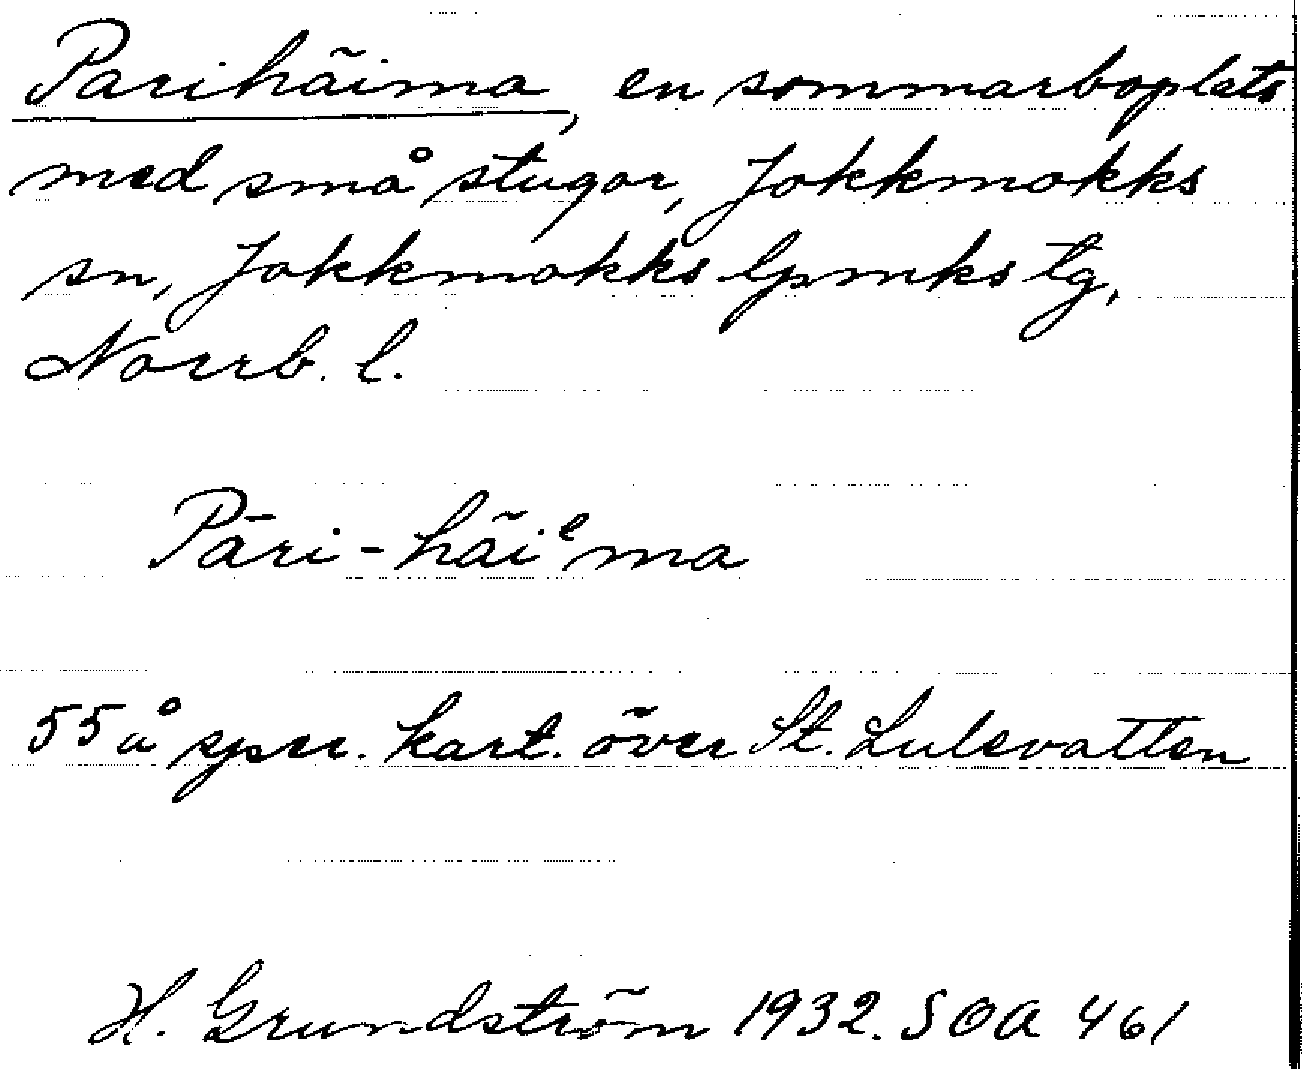 Parihäima, en sommarboplats
med små stugor, Jokkmokks
sn, Jokkmokks lpmks tg,
Norrb. l.
Pāri-häiᵉma
55 å spec. kart. över St. Lulevatten
H. Grundström 1932. SOA 461